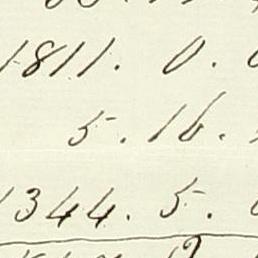 1811. 0.
5. 16.
1344. 5.